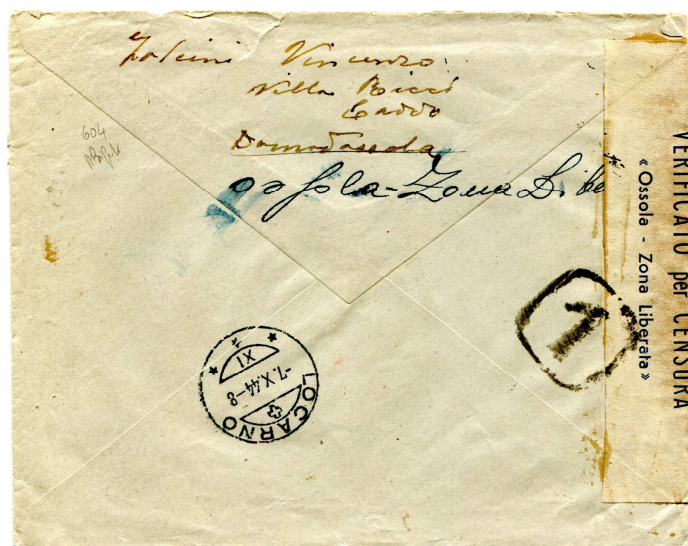 Vincenzo
Villa Ricci
Caddo
Domodossola
Ossola - Zona Libe
604
VERIFICATO per CENSURA
« Ossola - Zona Liberata »
1
XI
-7.X.44-8
LOCARNO